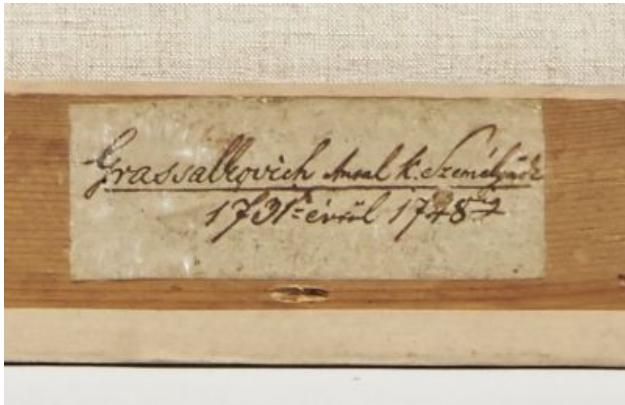 Grassalkovich Antal k. Személynök
1731k évtöl 1748ig